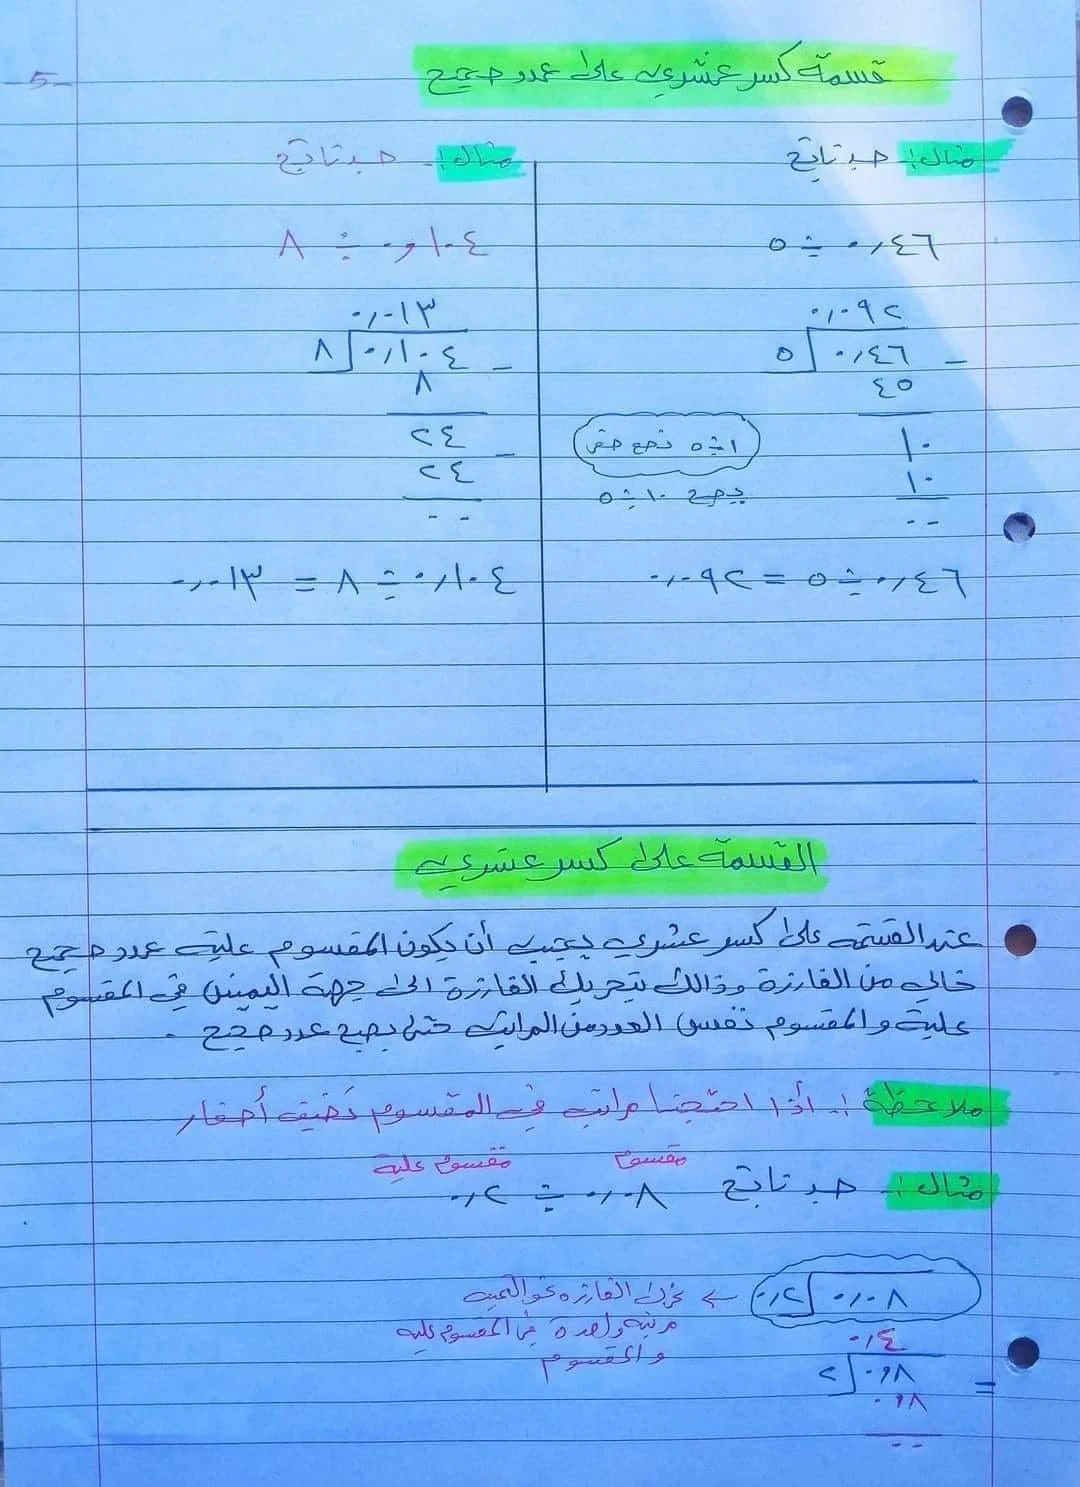 -5-
قسمة كسر عشري على عدد صحيح
مثال:- جد ناتج
٠,٤٦ ÷ ٥
٠,٠٩٢
٥ ٠,٤٦ -
٤٥
١٠
١٠
٠٠
١ ÷ ٥ تصح حتى
يصبح ١٠ ÷ ٥
٠,٤٦ ÷ ٥ = ٠,٠٩٢
مثال:- جد ناتج
٠,١٠٤ ÷ ٨
٠,٠١٣
٨ ٠,١٠٤ -
٨
٢٤ -
٢٤
٠٠
٠,١٠٤ ÷ ٨ = ٠,٠١٣
القسمة على كسر عشري
عند القسمة على كسر عشري يجب أن يكون المقسوم علية عدد صحيح
خالي من الفارزة وذالك بتحريك الفارزة الى جهة اليمين في المقسوم
علية والمقسوم نفس العدد من المراتب حتى يصبح عدد صحيح .
ملاحظة :- أذا احتجنا مراتب في المقسوم نضيف أصفار
مقسوم مقسوم علية
مثال :- جد ناتج ٠,٠٨ ÷ ٠,٢
٠,٢ ٠,٠٨ ← نحرك الفارزه نحو اليمين
مرتبه واحدة في المقسوم عليه
والمقسوم
٠,٤
= ٢ ٠,٨
٠,٨
٠٠